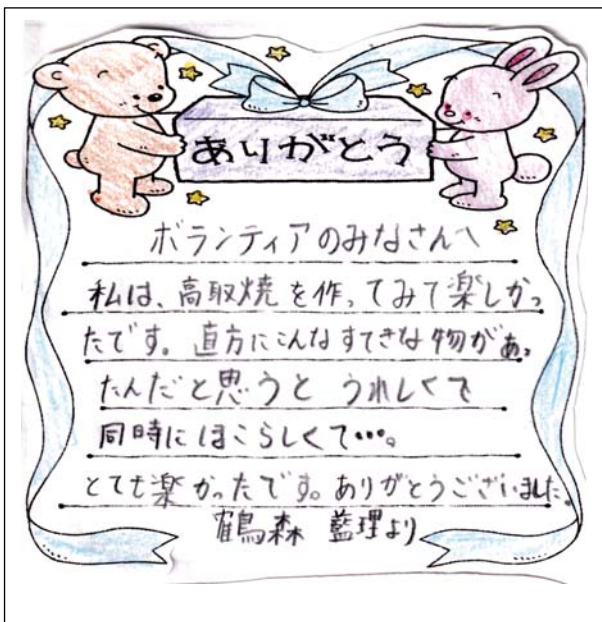 ありがとう
ボランティアのみなさんへ
私は、高取焼を作ってみて楽しかっ
たです。直方にこんなすてきな物があっ
たんだと思うと うれしくて
同時にほこらしくて…。
とても楽かったです。ありがとうございました。
鶴森 藍理より